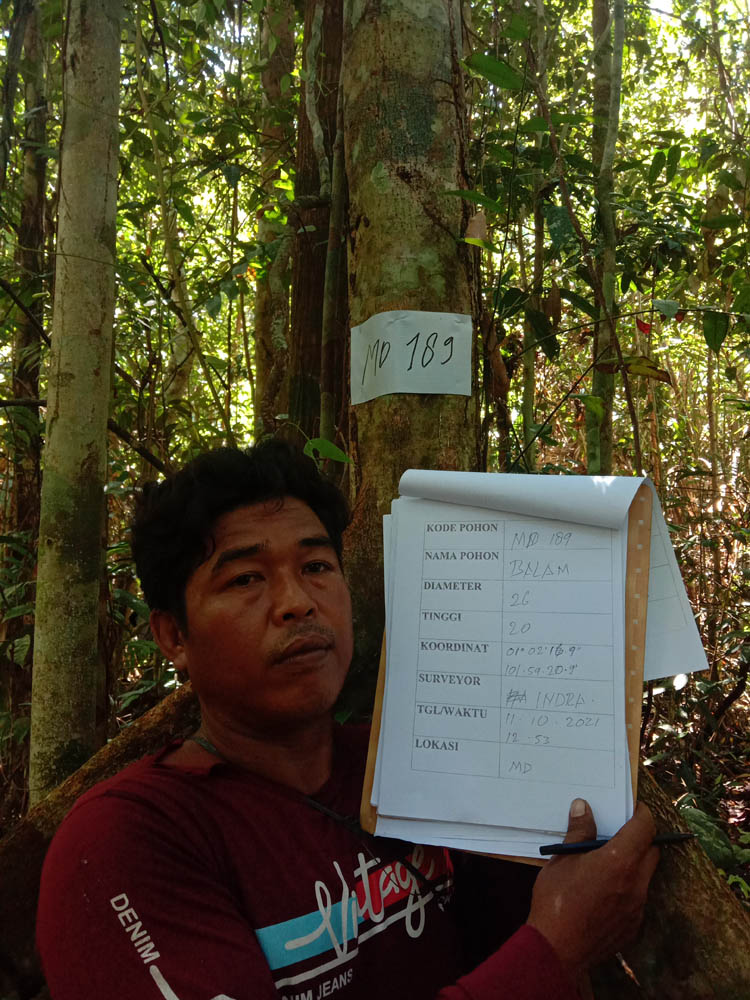 MD 189
KODE POHON MD 189
NAMA POHON BALAM
DIAMETER 26
TINGGI 20
KOORDINAT 01° 02' 16.9"
101.59.20.9"
SURVEYOR INDRA.
TGL/WAKTU 11.10.2021
12.53
LOKASI MD
DENIM
Vintage
DENIM JEANS